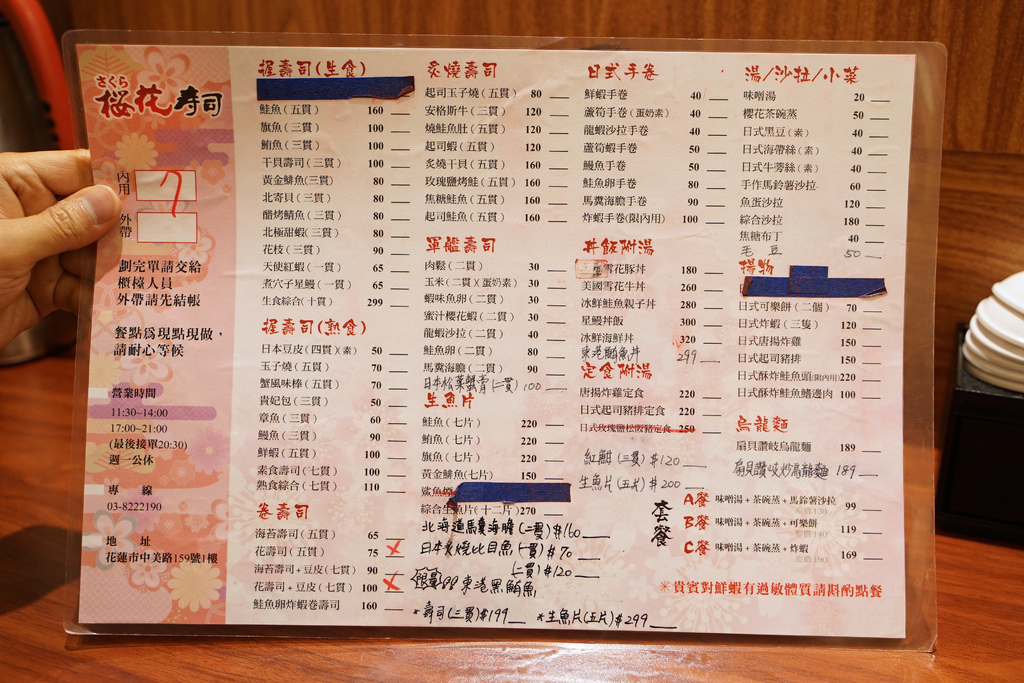 さくら
櫻花壽司
內用
外帶
劃完單請交給
櫃檯人員
外帶請先結帳
餐點為現點現做，
請耐心等候
營業時間
11:30~14:00
17:00~21:00
(最後接單20:30)
週一公休
專 線
03-8222190
地 址
花蓮市中美路159號1樓
握壽司(生食)
鮭魚(五貫) 160
旗魚(三貫) 100
鮪魚(三貫) 100
干貝壽司(三貫) 100
黃金鯡魚(三貫) 80
北寄貝(三貫) 80
醋烤鯖魚(三貫) 80
北極甜蝦(三貫) 80
花枝(三貫) 90
天使紅蝦(一貫) 65
煮穴子星鰻(一貫) 65
生食綜合(十貫) 299
握壽司(熟食)
日本豆皮(四貫)(素) 50
玉子燒(五貫) 70
蟹風味棒(五貫) 70
貴妃包(三貫) 50
章魚(三貫) 60
鰻魚(三貫) 90
鮮蝦(五貫) 100
素食壽司(七貫) 100
熟食綜合(七貫) 110
卷壽司
海苔壽司(五貫) 65
花壽司(五貫) 75
海苔壽司+豆皮(七貫) 90
花壽司+豆皮(七貫) 100
鮭魚卵炸蝦卷壽司 160
炙燒壽司
起司玉子燒(五貫) 80
安格斯牛(三貫) 120
燒鮭魚肚(五貫) 120
起司蝦(五貫) 120
炙燒干貝(五貫) 160
玫瑰鹽烤鮭(五貫) 160
焦糖鮭魚(五貫) 160
起司鮭魚(五貫) 160
軍艦壽司
肉鬆(二貫) 30
玉米(二貫)(蛋奶素) 30
蝦味魚卵(二貫) 30
蜜汁櫻花蝦(二貫) 30
龍蝦沙拉(二貫) 40
鮭魚卵(二貫) 80
馬糞海膽(二貫) 90
日本松葉蟹膏(二貫) 100
生魚片
鮭魚(七片) 220
鮪魚(七片) 220
旗魚(七片) 220
黃金鯡魚(七片) 150
綜合生魚片(十二片) 270
北海道馬糞海膽(二貫)$160
日本炙燒比目魚(一貫)$70
(二貫)$120
限量 東港黑鮪魚
*壽司(三貫)$199 *生魚片(五片)$299
日式手卷
鮮蝦手卷 40
蘆筍手卷(蛋奶素) 40
龍蝦沙拉手卷 40
蘆筍蝦手卷 50
鰻魚手卷 50
鮭魚卵手卷 80
馬糞海膽手卷 90
炸蝦手卷(限內用) 100
丼飯附湯
雪花豚丼 180
美國雪花牛丼 260
冰鮮鮭魚親子丼 280
星鰻丼飯 300
冰鮮海鮮丼 320
東港鮪魚丼 299
定食附湯
唐揚炸雞定食 220
日式起司豬排定食 220
日式玫瑰鹽松阪豬定食 250
紅魽(三貫)$120
生魚片(五片)$200
套餐
湯/沙拉/小菜
味噌湯 20
櫻花茶碗蒸 50
日式黑豆(素) 40
日式海帶絲(素) 40
日式牛蒡絲(素) 40
手作馬鈴薯沙拉 60
魚蛋沙拉 120
綜合沙拉 180
焦糖布丁 40
毛豆 50
揚物
日式可樂餅(二個) 70
日式炸蝦(三隻) 120
日式唐揚炸雞 150
日式起司豬排 150
日式酥炸鮭魚頭(限內用) 220
日式酥炸鮭魚鰭邊肉 100
烏龍麵
扇貝讚岐烏龍麵 189
扇貝讚岐炒烏龍麵 189
A餐 味噌湯+茶碗蒸+馬鈴薯沙拉 99
原價130
B餐 味噌湯+茶碗蒸+可樂餅 119
原價140
C餐 味噌湯+茶碗蒸+炸蝦 169
原價190
※貴賓對鮮蝦有過敏體質請斟酌點餐